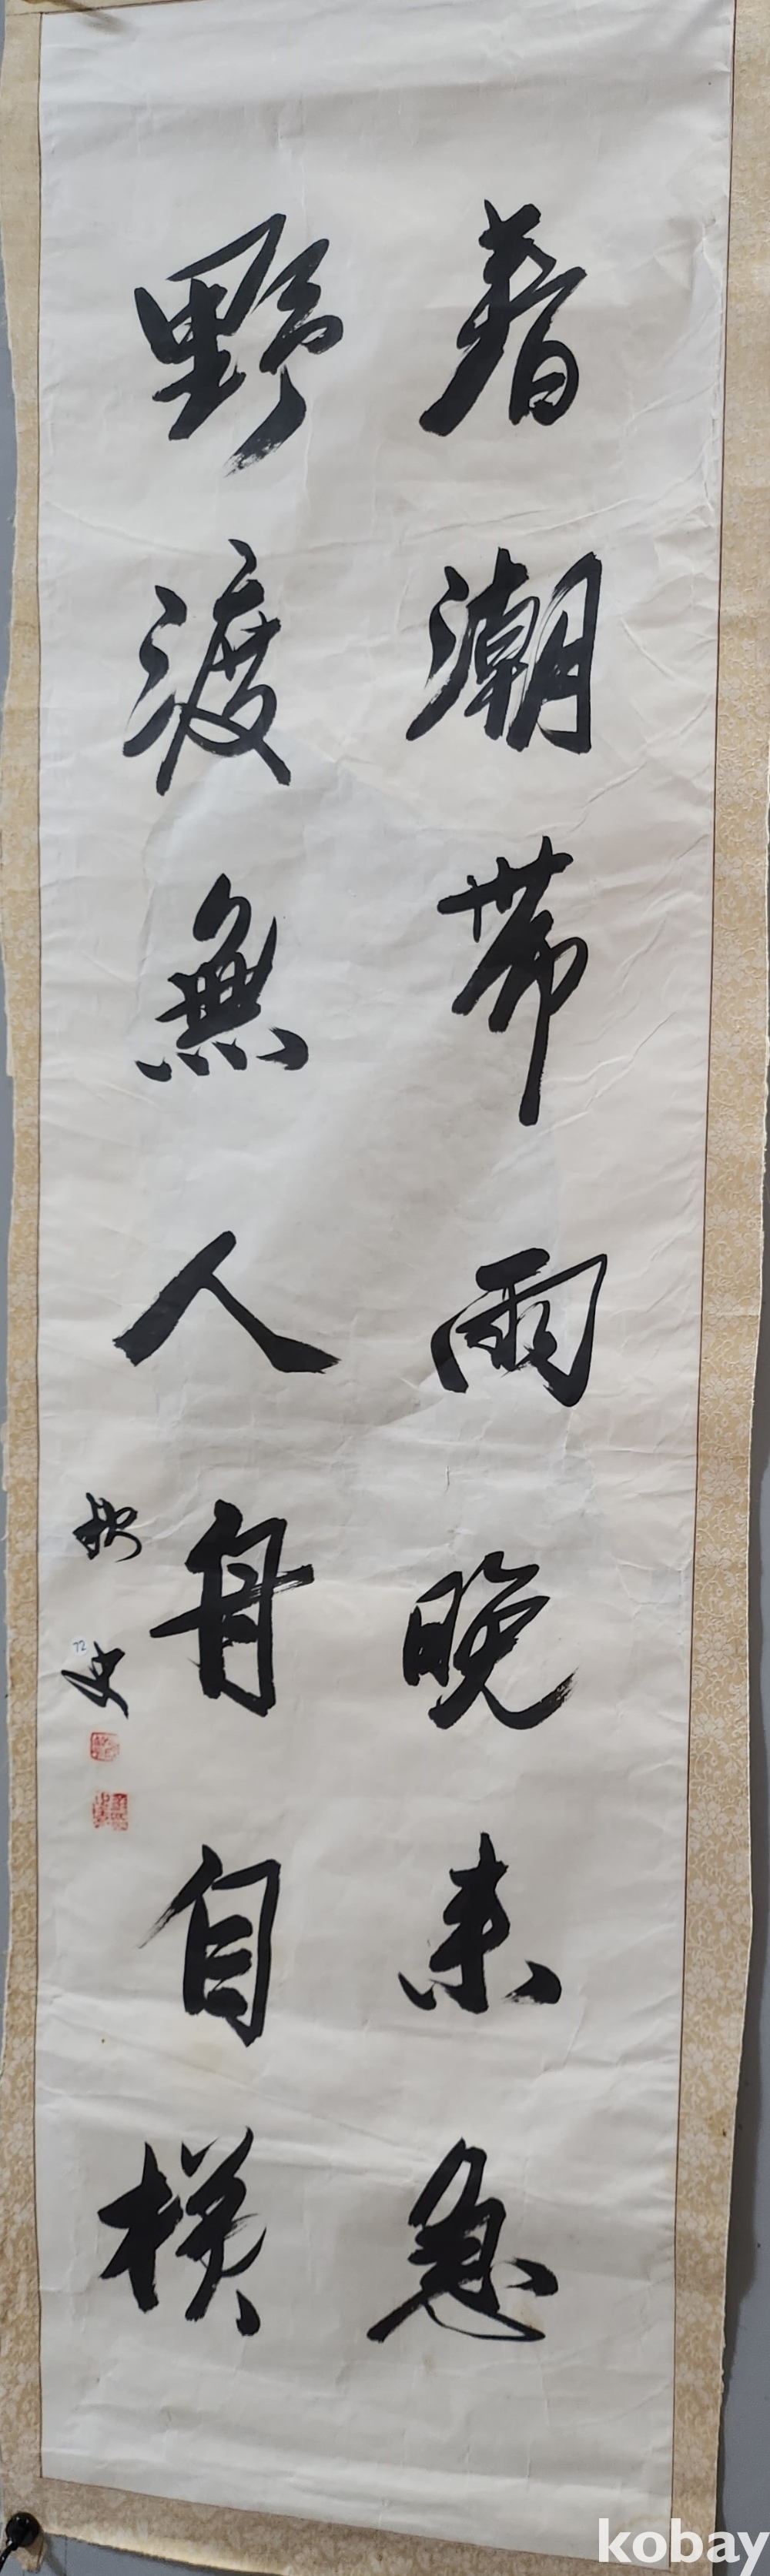 春潮帶雨晚来急
野渡無人舟自横
72
kobay